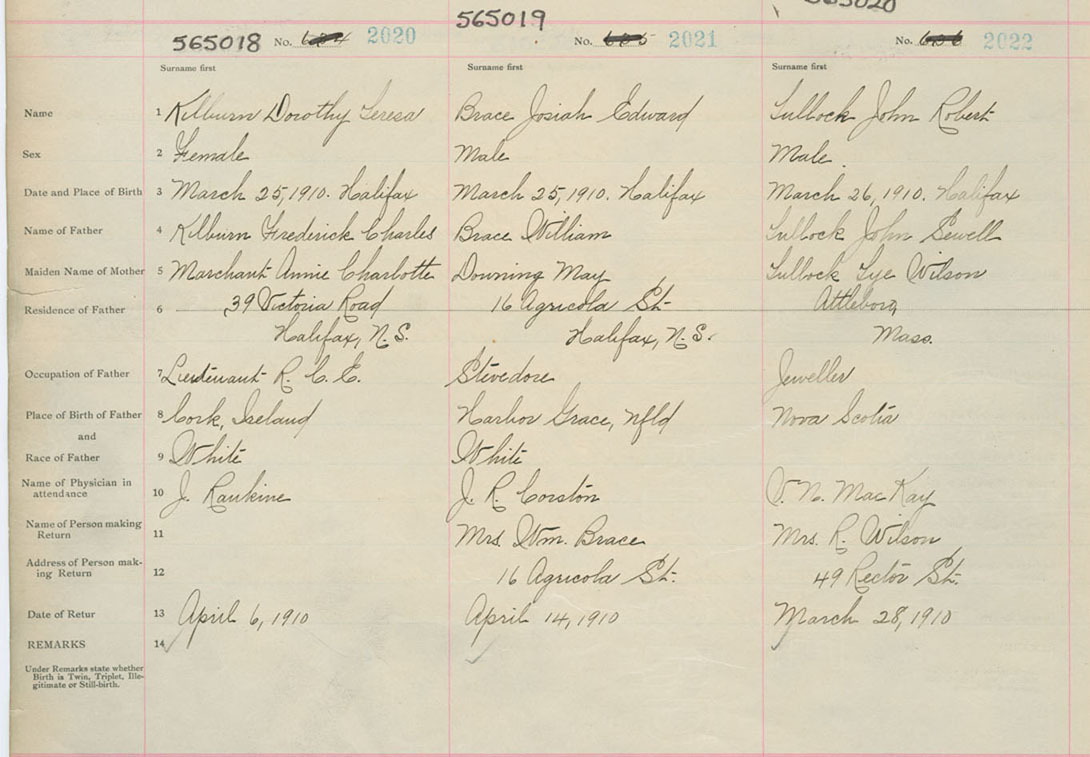 565018 No. 2020
565019 No. 2021
565020 No. 2022
Surname first Surname first Surname first
Name 1 Kilburn Dorothy Teresa Brace Josiah Edward Tullock John Robert
Sex 2 Female Male Male
Date and Place of Birth 3 March 25, 1910. Halifax March 25, 1910. Halifax March 26, 1910. Halifax
Name of Father 4 Kilburn Frederick Charles Brace William Tullock John Sewell
Maiden Name of Mother 5 Marchant Annie Charlotte Downing May Tullock Wilson
Residence of Father 6 39 Victoria Road 16 Agricola St. Attleboro,
Halifax, N.S. Halifax, N.S. Mass.
Occupation of Father 7 Lieutenant R. C. E. Stevedore Jeweller
Place of Birth of Father 8 Cork, Ireland Harbor Grace, Nfld Nova Scotia
and
Race of Father 9 White White
Name of Physician in
attendance 10 J. Rankine J. R. Corston N. MacKay
Name of Person making
Return 11 Mrs. Wm. Brace Mrs. R. Wilson
Address of Person mak-
ing Return 12 16 Agricola St. 49 Rector St.
Date of Retur 13 April 6, 1910 April 14, 1910 March 28, 1910
REMARKS 14
Under Remarks state whether
Birth is Twin, Triplet, Ille-
gitimate or Still-birth.